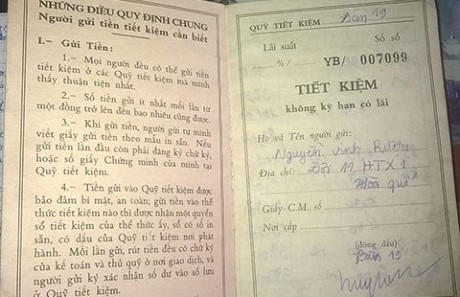 NHỮNG ĐIỀU QUY ĐỊNH CHUNG
Người gửi tiền tiết kiệm cần biết
I.— Gửi Tiền:
1.— Mọi người đều có thể gửi tiền
tiết kiệm ở các Quỹ tiết kiệm mà mình
thấy thuận tiện nhất.
2.— Số tiền gửi ít nhất mỗi lần từ
một đồng trở lên đến bao nhiêu cũng được.
3.— Khi gửi tiền, người gửi tự mình
viết giấy gửi tiền theo mẫu in sẵn. Nếu
gửi tiền lần đầu còn phải đăng ký chữ ký,
hoặc số giấy Chứng minh của mình tại
Quỹ tiết kiệm.
4.— Tiền gửi vào Quỹ tiết kiệm được
bảo đảm bí mật, an toàn; gửi tiền vào thể
thức tiết kiệm nào thì được nhận một quyển
sổ tiết kiệm của thể thức ấy, sổ có số in
sẵn, có dấu của Quỹ tiết kiệm nơi phát
hành. Mỗi lần gửi, rút tiền đều có chữ ký
của kế toán và thủ quỹ ở nơi giao dịch, và
người gửi ký xác nhận số dư vào sổ lưu
ở Quỹ tiết kiệm.
QUỸ TIẾT KIỆM Bàn 19
Lãi suất Số sổ
%/ YB/ 007099
TIẾT KIỆM
không kỳ hạn có lãi
Họ và Tên người gửi:
Nguyễn Anh
Địa chỉ: Đội 11 HTX 1
Hòa quế
Giấy C.M. số
Nơi cấp
(đóng dấu)
Bàn 19